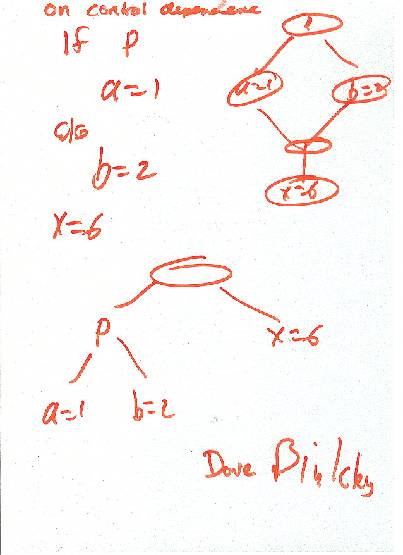 on control dependence
If P
a=1
els
b=2
x=6
a=1
b=2
x=6
P
x=6
a=1
b=2
Dave Binkley